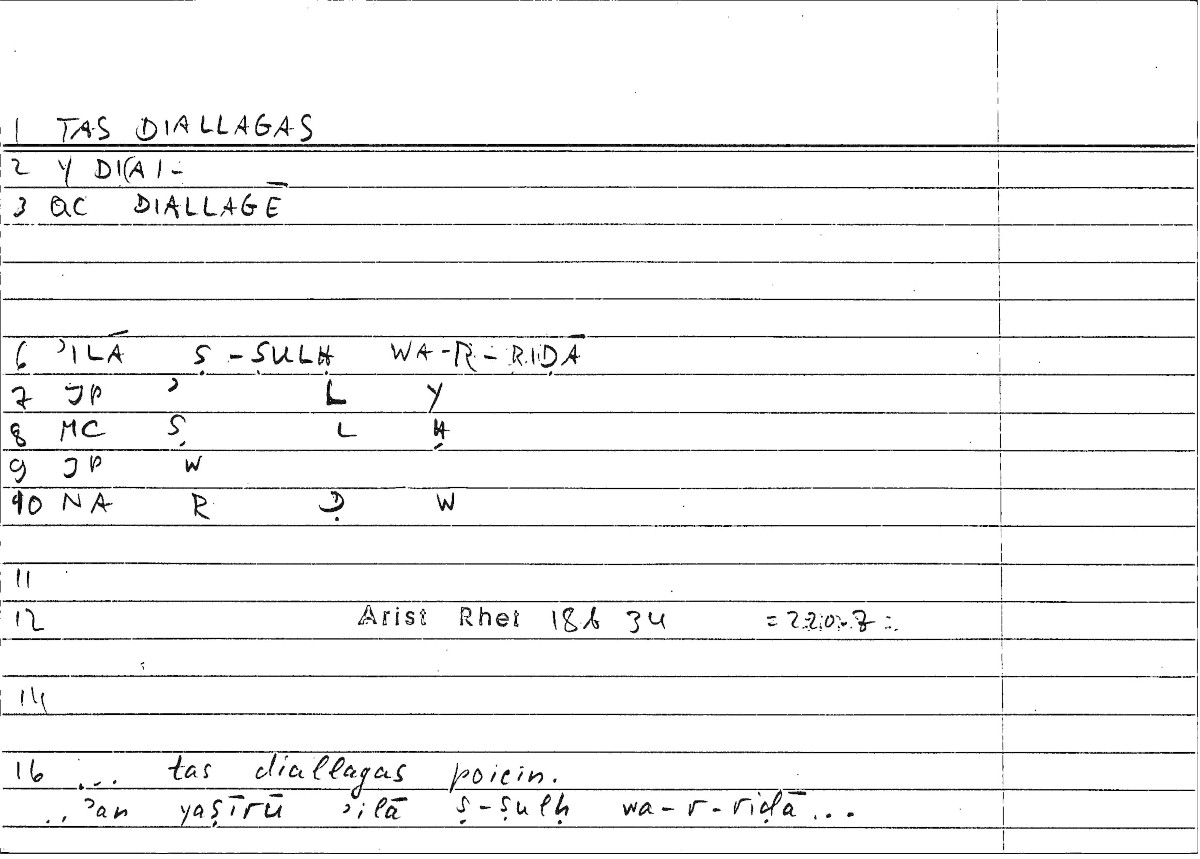 1 TAS DIALLAGAS
2 Y DIAI-
3 QC DIALLAGĒ
6 ʾILĀ Ṣ-ṢULḤ WA-R-RIḌĀ
7 JP ʾ L Y
8 MC Ṣ L Ḥ
9 JP W
10 NA R Ḍ W
11
12 Arist Rhet 18b 34
14
16 ... tas diallagas poiein.
..ʾan yaṣīrū ʾilā ṣ-ṣulḥ wa-r-riḍā...